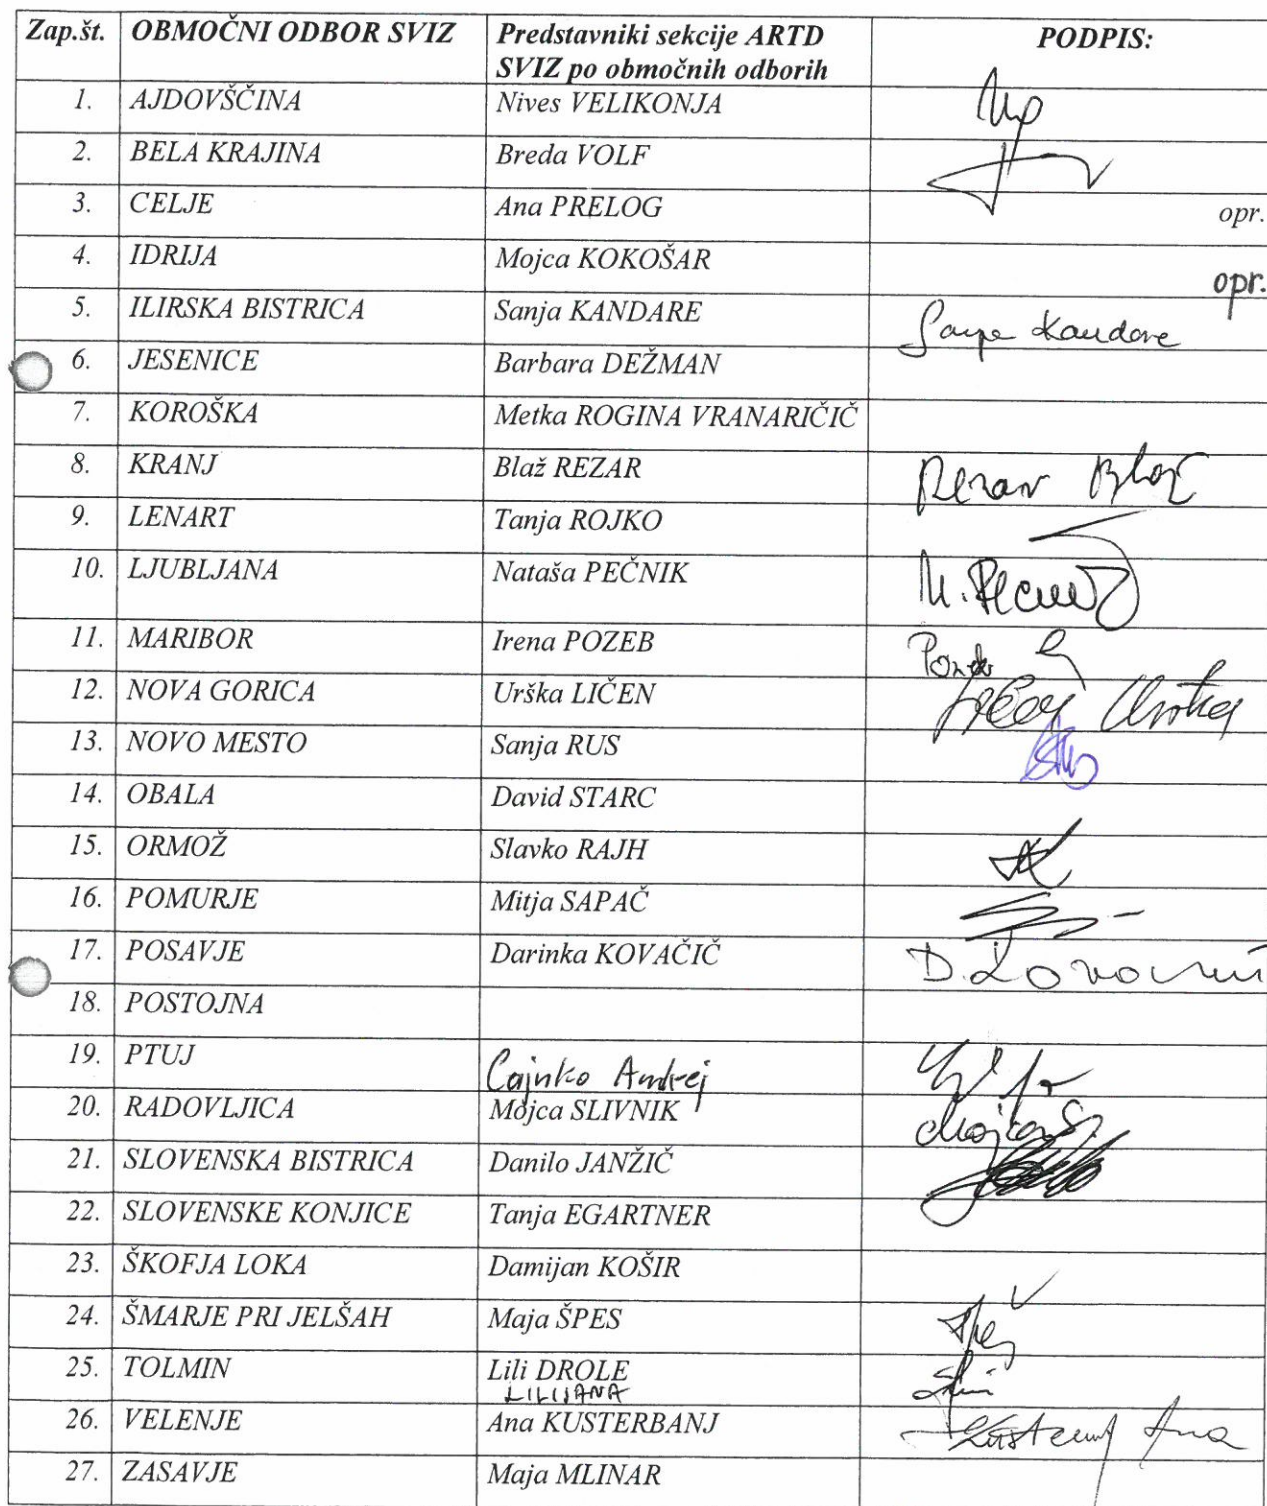 Zap.št. OBMOČNI ODBOR SVIZ Predstavniki sekcije ARTD PODPIS:
SVIZ po območnih odborih
1. AJDOVŠČINA Nives VELIKONJA
2. BELA KRAJINA Breda VOLF
3. CELJE Ana PRELOG opr.
4. IDRIJA Mojca KOKOŠAR opr.
5. ILIRSKA BISTRICA Sanja KANDARE Sanja Kandare
6. JESENICE Barbara DEŽMAN
7. KOROŠKA Metka ROGINA VRANARIČIČ
8. KRANJ Blaž REZAR Rezar Blaž
9. LENART Tanja ROJKO
10. LJUBLJANA Nataša PEČNIK
11. MARIBOR Irena POZEB
12. NOVA GORICA Urška LIČEN
13. NOVO MESTO Sanja RUS
14. OBALA David STARC
15. ORMOŽ Slavko RAJH
16. POMURJE Mitja SAPAČ
17. POSAVJE Darinka KOVAČIČ D. Kovačič
18. POSTOJNA
19. PTUJ Cajnko Andrej
20. RADOVLJICA Mojca SLIVNIK Mojca S.
21. SLOVENSKA BISTRICA Danilo JANŽIČ
22. SLOVENSKE KONJICE Tanja EGARTNER
23. ŠKOFJA LOKA Damijan KOŠIR
24. ŠMARJE PRI JELŠAH Maja ŠPES
25. TOLMIN Lili DROLE
LILIJANA
26. VELENJE Ana KUSTERBANJ
27. ZASAVJE Maja MLINAR